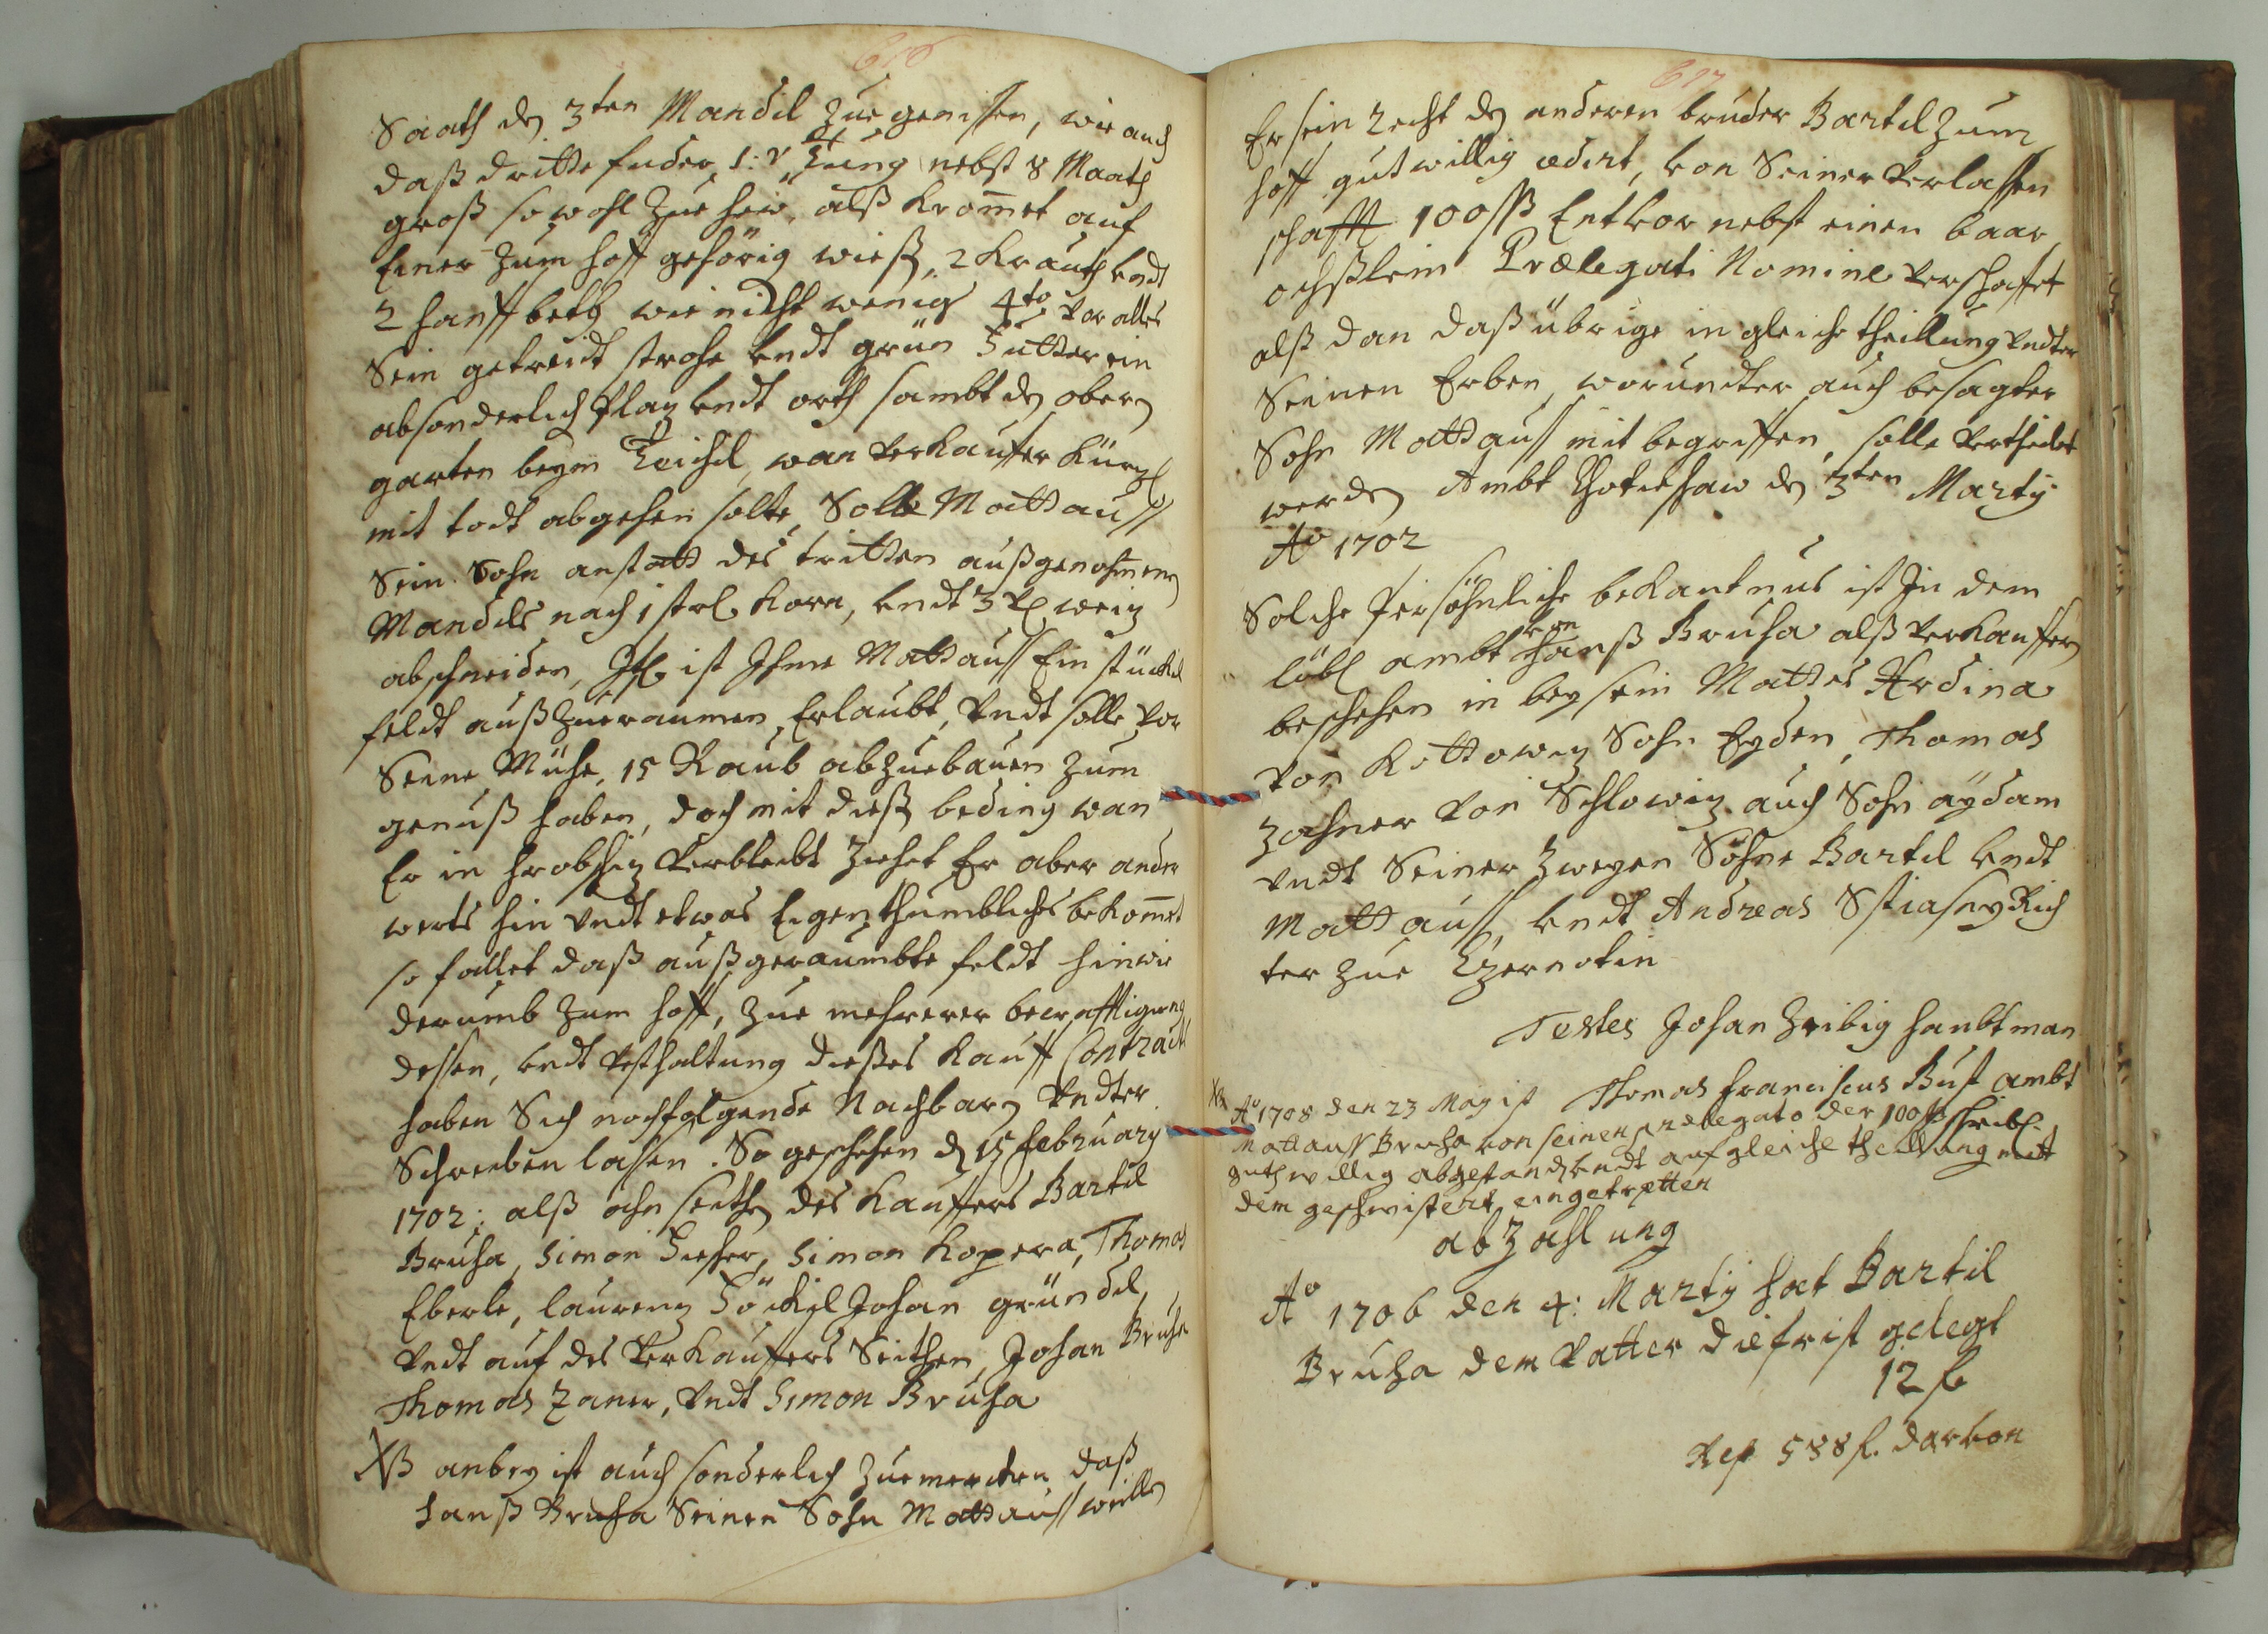 616
Saath dem 3ten Mandel zue genissen, wie auch
daß dritte fuder, s: v: Tung nebst 8 Maath
groß so wohl zue heü, alß Krommet auf
Einer zum hoff gehörig wieß, 2 Krauth undt
2 hanff beth wie nicht weniger 4to vor alles
Sein getreidt strohe undt grün Futter ein
absonderlich Plaz undt orth sambt dem obern
garten beym Teichel, wan verkaufer Kürzl
mit todt abgehen solte, Solle Mattauß
Sein Sohn anstatt des tritten außgenohmmenen
Mandels nach 1 strl Korn, undt 3 weiz
abschneiden, Itl ist Ihme Mattauß Ein stückel
feldt außzueraumen Erlaubt, undt solle vor
Seine Mühe, 15 Raub abzuebauen zum
genuß haben, doch mit dieß beding wan
Er in Hrobschiz verbleibt ziehet Er aber ander
werts hin undt etwas Eigenthumbliches bekommet
so fallet daß außgeraumbte feldt hinwie
derumb zum hoff, zue mehrerer becräfftigung
dessen, undt vesthaltung dießes Kauff Contract
haben Sich nachfolgende Nachbarn undter
Schreiben lassen. So geschehen d 15 February
1702: alß ahn seithen des Kauffers Bartel
Bruha, Simon Tischer, Simon Kopera, Thomas
Eberle, laurenz Föckel Johan gründel,
undt auf des verkauffers Seithen, Johan Bruha
Thomas Zaner, undt Simon Bruha
NB anbey ist auch sonderlich zuemercken daß
hanß Bruha Seinen Sohn Mattauß weillen
617
Er sein recht dem anderen bruder Bartel zum
hoff gutwillig cedirt, von Seiner verlassen
schafft 100 ßß Entvor nebst einen baar
ochßlein Prælegati Nomine verschaffet
alß dan daß übrige in gleiche theillung undter
Seinen Erben, worundter auch besagter
Sohn Mattauß mit begriffen, solle vertheilet
werden Ambt Chotieschau den 3ten Marty
Ao 1702
Solche Persöhnliche bekantnus ist In dem
löbl ambt von hanß Bruha alß verkauffern
beschehen in beysein Mattes Ardina
von Kottowiz Sohn Eyden, Thomas
Zahner von Schlowiz auch Sohn aÿdam
undt Seiner Zweyen Söhne Bartel undt
Mattauß, undt Andreas Stiasny Rich
ter zue Czernotin
Testes Johan Zeibig haubtman
Thomas Franciscus Bust ambt
schreib
NB Ao 1708 den 23 May ist
Mattauß Bruha von seinen prælegato der 100 ßß
guthwillig abgestanden undt auf gleiche theillung mit
dem geschwistert eingetretten
abzahlung
Ao 1706 den 4: Martij hat Bartel
Bruha dem vatter die frist gelegt
12 fl
Rest 588 fl. darvon